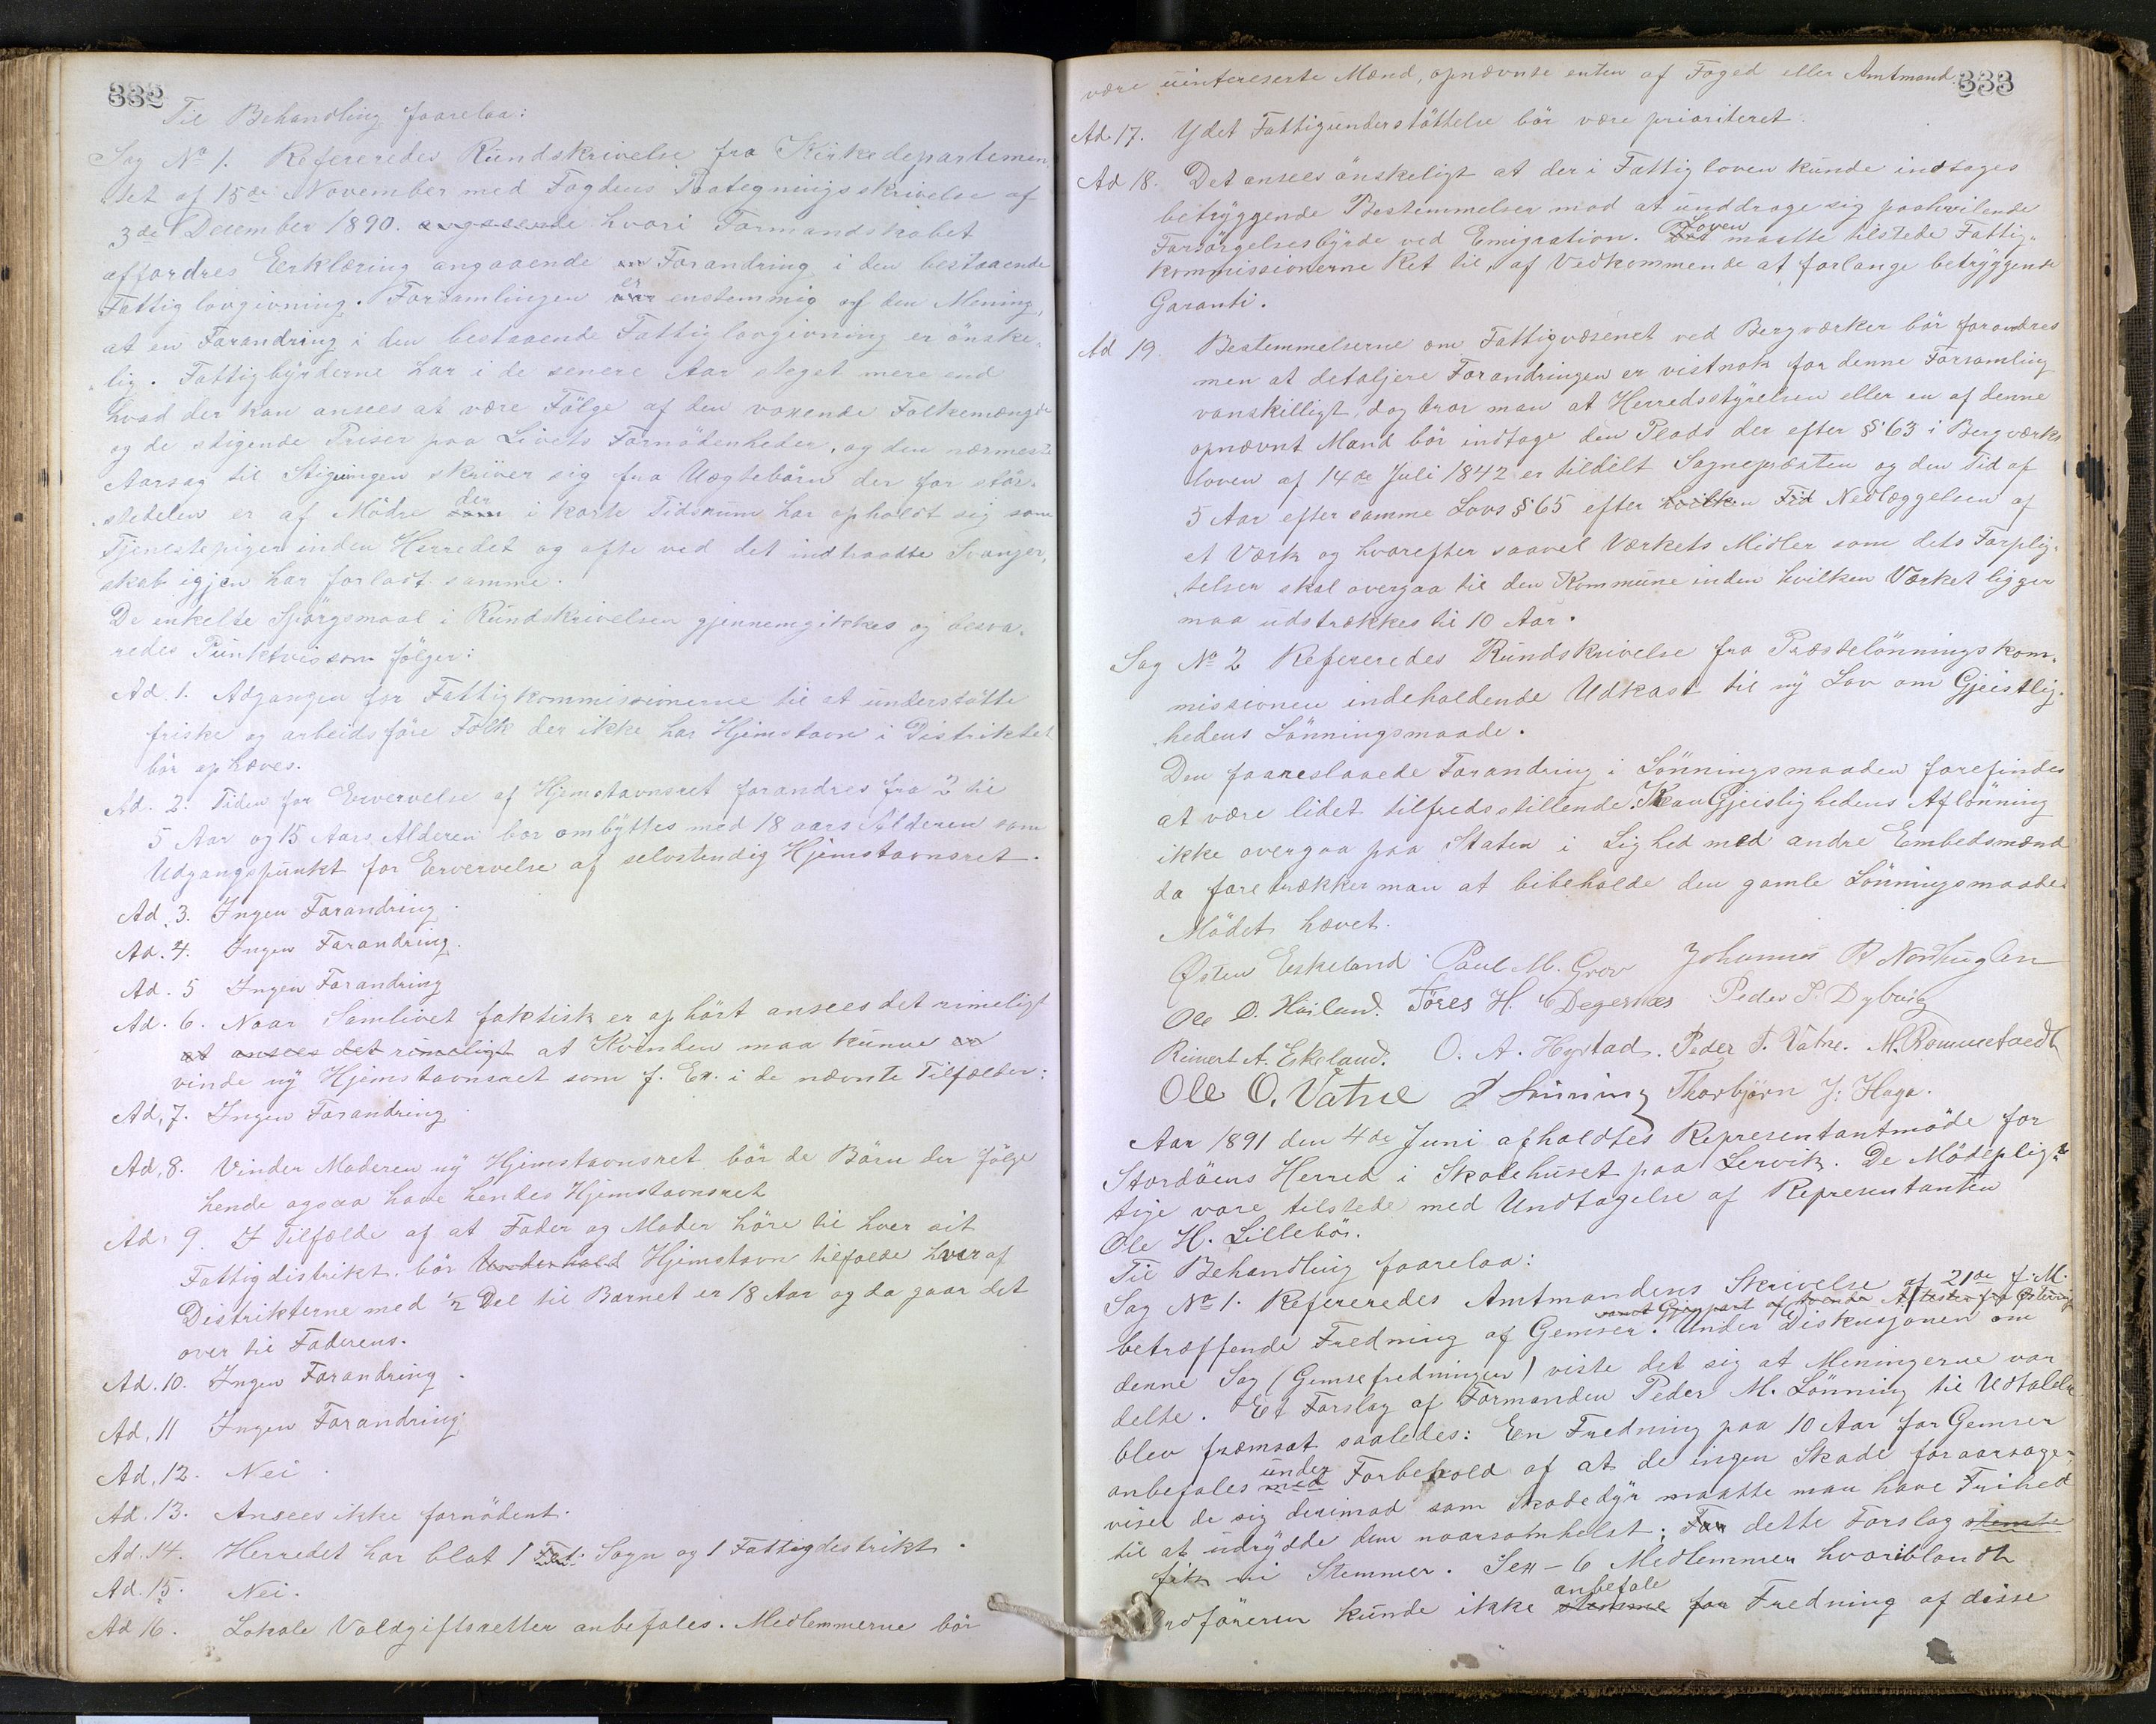 332
Til Behandling foorelaa:
Sag No 1. Refereredes Rundskrivelse fra Kirkedepartemen
tet af 15de November med Fogdens Paategningsskrivelse af
3de December 1890. hvori Formandskabet
affordres Erklæring angaaende en Forandring i den bestaaende
Fattiglovgivning. Forsamlingen er enstemmig af den Mening,
at en Forandring i den bestaaende Fattiglovgivning er önske-
lig. Fattigbyrderne har i de senere Aar steget mere end
hvad der kan ansees at være Fölge af den voxende Folkemængde
og de stigende Priser paa Livets Fornödenheder, og den nærmeste
Aarsag til Stigningen skriver sig fra Uægtebörn der for stör-
stedelen er af Mödre som der i korte Tidsrum har opholdt sig som
Tjenestepiger inden Herredet og ofte ved det indtraadte Svanger-
skab igjen har forladt samme.
De enkelte Spörgsmaal i Rundskrivelsen gjennemgikkes og besva-
redes Punktvis som fölger:
Ad. 1. Adgangen for Fattigkommissionerne til at understötte
friske og arbeidsföre Folk der ikke har Hjemstavn i Distriktet
bör ophæves.
Ad. 2. Tiden for Erværvelse af Hjemstavnsret forandres fra 2 til
5 Aar og 15 Aars Alderen bör ombyttes med 18 aars Alderen som
Udgangspunkt for Ervervelse af selvstendig Hjemstavnsret.
Ad. 3. Ingen Forandring.
Ad. 4. Ingen Forandring.
Ad. 5 Ingen Forandring
Ad. 6. Naar Samlivet faktisk er ophört ansees det rimeligt
at ansees det rimeligt at Kvinden maa kunne
vinde ny Hjemstavnsret som f. Ex. i de nævnte Tilfælder:
Ad. 7. Ingen Forandring.
Ad. 8. Vinder Moderen ny Hjemstavnsret bör de Börn der fölge
hende ogsaa have hendes Hjemstavnsret
Ad. 9. I Tilfælde af at Fader og Moder höre til hver sit
Fattigdistrikt, bör Underhold Hjemstavn tilfalde hver af
Distrikterne med 1/2 Del til Barnet er 18 Aar og da gaar det
over til Faderens.
Ad. 10. Ingen Forandring.
Ad. 11 Ingen Forandring.
Ad. 12. Nei.
Ad. 13. Ansees ikke fornödent.
Ad. 14. Herredet har blot 1 Sogn og 1 Fattigdistrikt.
Ad. 15. Nei.
Ad 16. Lokale Voldgiftsretter anbefales. Medlemmerne bör
333
være uintereserte Mænd, opnævnte enten af Foged eller Amtmand.
Ad 17. Ydet Fattigunderstöttelse bör være prioriteret.
Ad 18. Det ansees önskeligt at der i Fattigloven kunde indtages
betryggende Bestemmelser mod at unddrage sig paahvilende
Forsörgelsesbyrde ved Emigration. Loven maatte tilstede Fattig-
kommissionerne Ret til, af Vedkommende at forlange betryggende
Garanti.
Ad 19. Bestemmelserne om Fattigvæsenet ved Bergværker bör forandres
men at detaljere Forandringen er vistnok for denne Forsamling
vanskilligt, dog tror man at Herredsstyrelsen eller en af denne
opnævnt Mand bör indtage den Plads der efter § 63 i Bergværks
loven af 14de Juli 1842 er tildelt Sognepræsten og den Tid af
5 Aar efter samme Lovs § 65 efter hvilken Tid Nedlæggelsen af
et Værk og hvorefter saavel Værkets Midler som dets Forplig-
telser skal overgaa til den Kommune inden hvilken Værket ligger
maa udstrækkes til 10 Aar.
Sag No 2 Refereredes Rundskrivelse fra Præstelönningskom-
missionen indeholdende Udkast til ny Lov om Gjeistlig-
hedens Lönningsmaade.
Den foareslaaede Forandring i Lönningsmaaden forefindes
at være lidet tilfredsstillende. Kan Gjeislighedens Aflönning
ikke overgaa paa Staten i Lighed med andre Embedsmænd
da foretrækker man at bibeholde den gamle Lönningsmaade.
Mödet hævet.
Østen Eskeland Paul M. Grov Johannes P Nordhuglen
Ole O. Höiland. Töres H. Degernæs Peder P. Dybvig
Reinert A. Eskeland. O. A. Hystad. Peder T. Vatne. M. Rommetvedt
Ole O. Vatne P Lönning Thorbjörn J. Haga.
Aar 1891 den 4de Juni afholdtes Representantmöde for
Stordöens Herred i Skolehuset paa Lervik. De Mödeplig-
tige vare tilstede med Undtagelse af Representanten
Ole H. Lillebö.
Til Behandling foorelaa:
Sag No 1. Refereredes Amtmandens Skrivelse af 21de f. M.
samt Gjenpart af
betræffende Fredning af Gemser. Under Diskusjonen om
denne Sag (Gemsefredningen) viste det sig at Meningerne var
delte. Et Forslag af Formanden Peder M. Lönning til Udtalelse
blev fremsat saaledes: En Fredning paa 10 Aar for Gemser
anbefales med under Forbehold af at de ingen Skade foraarsage-
viser de sig derimod som Skadedyr maatte man have Frihed
til at udrydde dem naarsomhelst; For dette Forslag stemte
fik ni Stemmer. Sex - 6 Medlemmer hvoriblandt
Ordföreren kunde ikke stemme for anbefale Fredning af disse